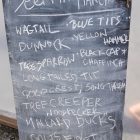 WAGTAIL BLUE TITS
DUNNOCK YELLOW HAMMER
TREE SPARROW BLACK CAP
CHAFFINCH
LONG TAILED TIT
GOLD CREST SONG THRUSH
TREE CREEPER
WOODPECKER
MALLARD DUCKS